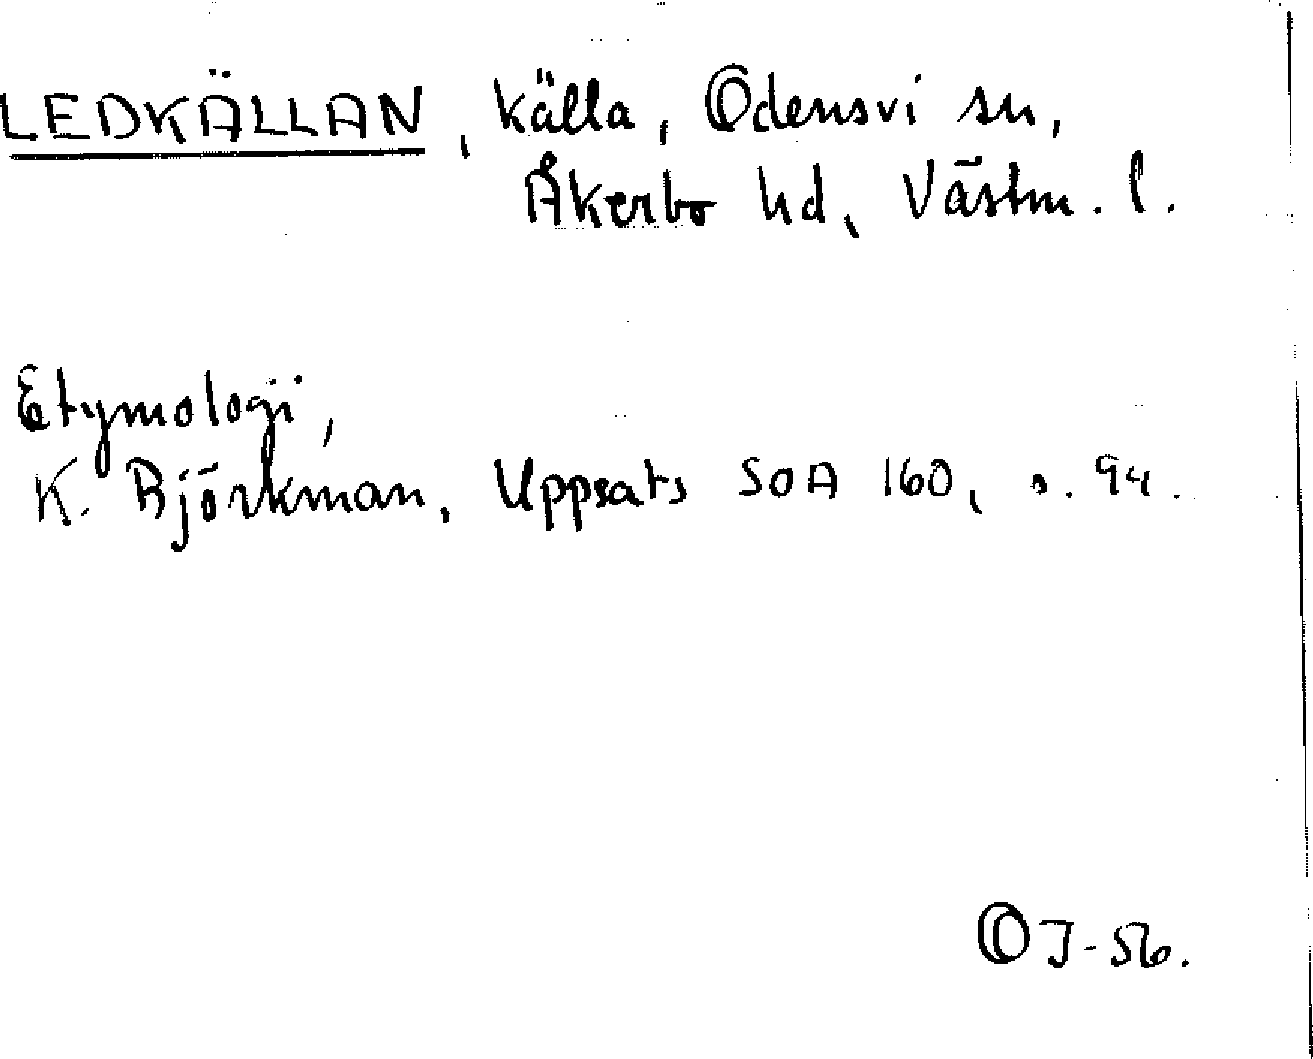 LEDKÄLLAN, källa, Odensvi sn,
Åkerbo hd, Västm. l.
Etymologi,
K. Björkman, Uppsats SOA 160, s. 94.
OJ-56.